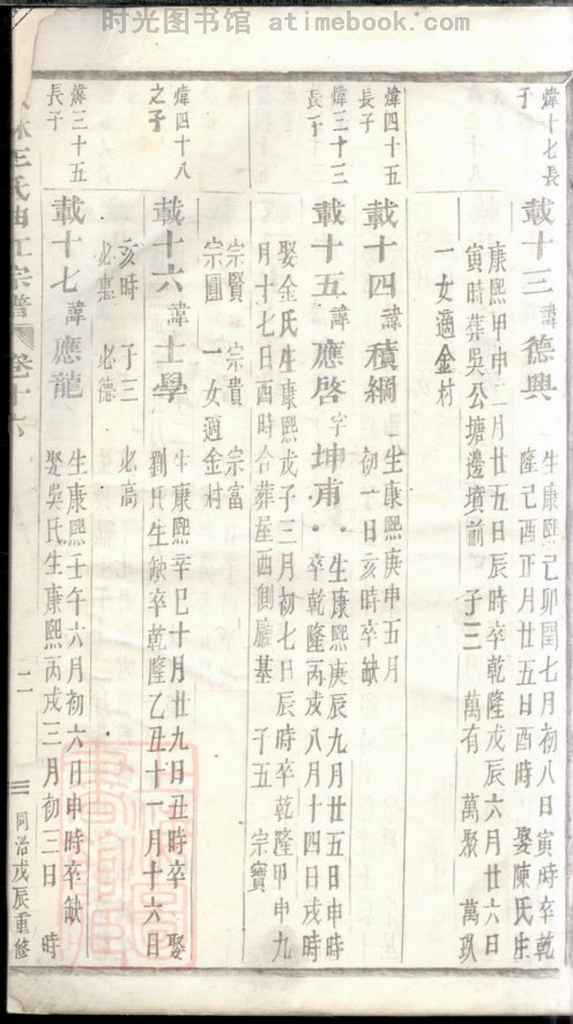 时光图书馆 atimebook.com
煒十七長
子
載十三諱德興
生康熙己卯閏七月初八日寅時卒乾
隆己酉正月廿五日酉時 娶陳氏生
康熙甲申二月廿五日辰時卒乾隆戊辰六月廿六日
寅時葬吳公塘邊墳前 子三 萬有 萬聚 萬玖
一女適金村
煒四十五
長子
載十四諱積綱
生康熙庚申五月
初一日亥時卒缺
煒三十三
長子
載十五諱應啓字坤甫
生康熙庚辰九月廿五日申時
卒乾隆丙戌八月十四日戌時
娶金氏生康熙戊子三月初七日辰時卒乾隆甲申九
月十七日酉時合葬屋西側廳基 子五 宗寶
宗賢 宗貴 宗富
宗圓 一女適金村
煒四十八
之子
載十六諱士學
生康熙辛巳十月廿九日丑時卒 娶
劉氏生缺卒乾隆乙丑十一月十六日
亥時 子三 必高
必惠 必德
煒三十五
長子
載十七諱應龍
生康熙壬午六月初六日申時卒缺
娶吳氏生康熙丙戌三月初三日 時
林王氏 宗譜 卷十六 二 同治戊辰重修